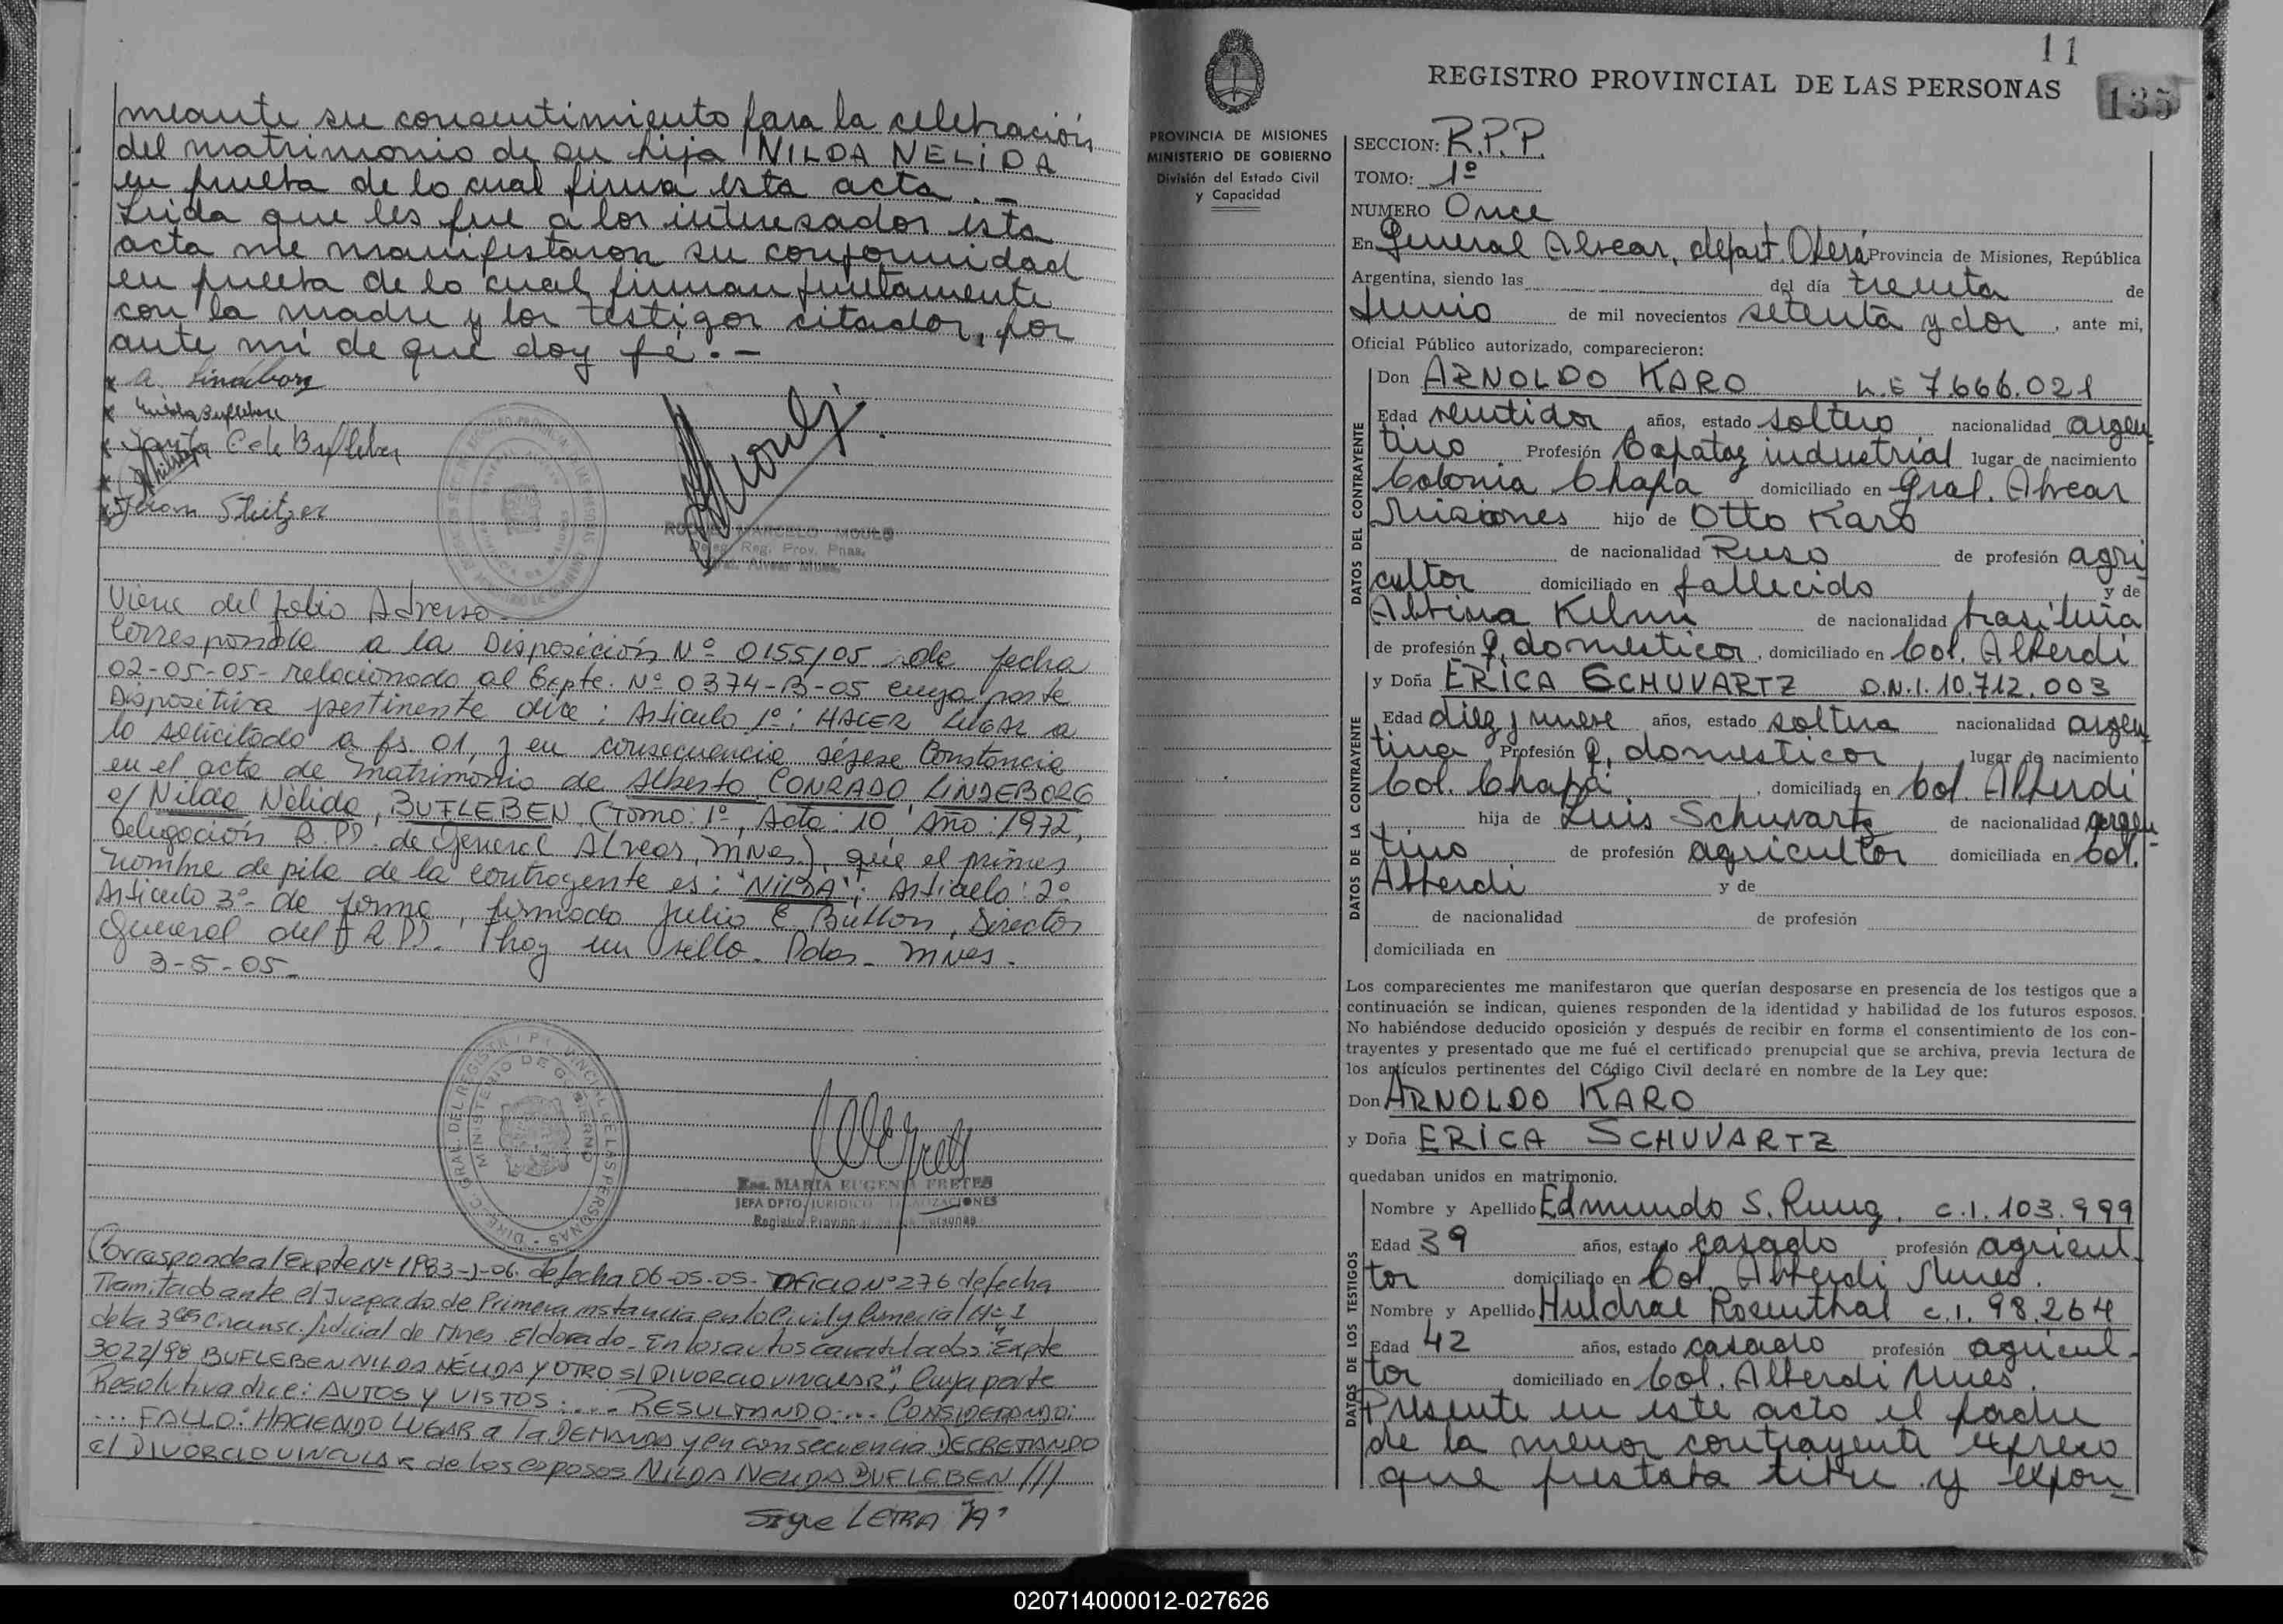 meante su consentimiento para la celebración
del matrimonio de su hija NILDA NELIDA
en prueba de lo cual firma esta acta.-
Leida que les fue a los interesados esta
acta me manifestaron su conformidad
en prueba de lo cual firman juntamente
con la madre y los testigos citados, por
ante mi de que doy fe.-
Viene del folio Adverso-
Corresponde a la Disposición Nº 0155/05 de fecha
02-05-05- relacionado al Expte. Nº 0374-B-05 cuya parte
Dispositiva pertinente dice: Artículo 1º: HACER LUGAR a
lo solicitado a fs. 01, y en consecuencia déjese Constancia
en el acta de matrimonio de Alberto CONRADO LINDEBORG
c/ Nilda Nélida BUFLEBEN (Tomo: 1º, Acta: 10, Año: 1972,
Delegación R.PP. de General Alvear, Mnes.), que el primer
nombre de pila de la contrayente es: "NILDA"; Artículo: 2º
Artículo 3º- de forma, firmado Julio E. Bullon, Director
General del R.PP. - hay un sello. Pdas. Mnes.-
3-5-05-
Esc. MARIA EUGENIA FRETES
JEFA DPTO. JURIDICO
Registro Provincial de las Personas
Corresponde al Expte Nº 1983-J-06. de fecha 06-05-05. OFICIO Nº 276 de fecha
Tramitado ante el Juzgado de Primera instancia en lo Civil y Comercial Nº 1
de la 3era Circunsc. Judicial de Mnes. Eldorado- En los autos caratulados "Expte
3022/98 BUFLEBEN NILDA NÉLIDA Y OTRO S/DIVORCIO VINCULAR", Cuya parte
Resolutiva dice: AUTOS Y VISTOS:.... RESULTANDO:... CONSIDERANDO:
... FALLO: HACIENDO LUGAR a la DEMANDA y en consecuencia DECRETANDO
el DIVORCIO VINCULAR de los esposos NILDA NELIDA BUFLEBEN ///
Sigue LETRA "A"
11
REGISTRO PROVINCIAL DE LAS PERSONAS
135
PROVINCIA DE MISIONES
MINISTERIO DE GOBIERNO
División del Estado Civil
y Capacidad
SECCION: R.P.P.
TOMO: 1º
NUMERO Once
En General Alvear, depart. Oberá Provincia de Misiones, República
Argentina, siendo las del día treinta de
Junio de mil novecientos setenta y dos, ante mi,
Oficial Público autorizado, comparecieron:
DATOS DEL CONTRAYENTE
Don ARNOLDO KARO L.E 7.666.021
Edad veintidos años, estado soltero nacionalidad argen
tino Profesión Capataz industrial lugar de nacimiento
Colonia Chapa domiciliado en Gral. Alvear
Misiones hijo de Otto Karo
de nacionalidad Ruso de profesión agri
cultor domiciliado en fallecido y de
Albina Kelm de nacionalidad brasileña
de profesión q. domesticos, domiciliado en Col. Alberdi
DATOS DE LA CONTRAYENTE
y Doña ERICA SCHUVARTZ D.N.I. 10.712.003
Edad diez y nueve años, estado soltera nacionalidad argen
tina Profesión q. domesticos lugar de nacimiento
Col. Chapá, domiciliada en Col. Alberdi
hija de Luis Schuvartz de nacionalidad argen
tino de profesión agricultor domiciliada en Col.
Alberdi y de
de nacionalidad de profesión
domiciliada en
Los comparecientes me manifestaron que querían desposarse en presencia de los testigos que a
continuación se indican, quienes responden de la identidad y habilidad de los futuros esposos.
No habiéndose deducido oposición y después de recibir en forma el consentimiento de los con-
trayentes y presentado que me fué el certificado prenupcial que se archiva, previa lectura de
los artículos pertinentes del Código Civil declaré en nombre de la Ley que:
Don ARNOLDO KARO
y Doña ERICA SCHUVARTZ
quedaban unidos en matrimonio.
DATOS DE LOS TESTIGOS
Nombre y Apellido Edmundo S. Rung. C.I. 103.999
Edad 39 años, estado casado profesión agricul
tor domiciliado en Col. Alberdi Mnes.
Nombre y Apellido Huldrae Rosenthal C.I. 98.264
Edad 42 años, estado casado profesión agricul-
tor domiciliado en Col. Alberdi Mnes.
Presente en este acto el padre
de la menor contrayente expreso
que prestaba libre y espon-
020714000012-027626